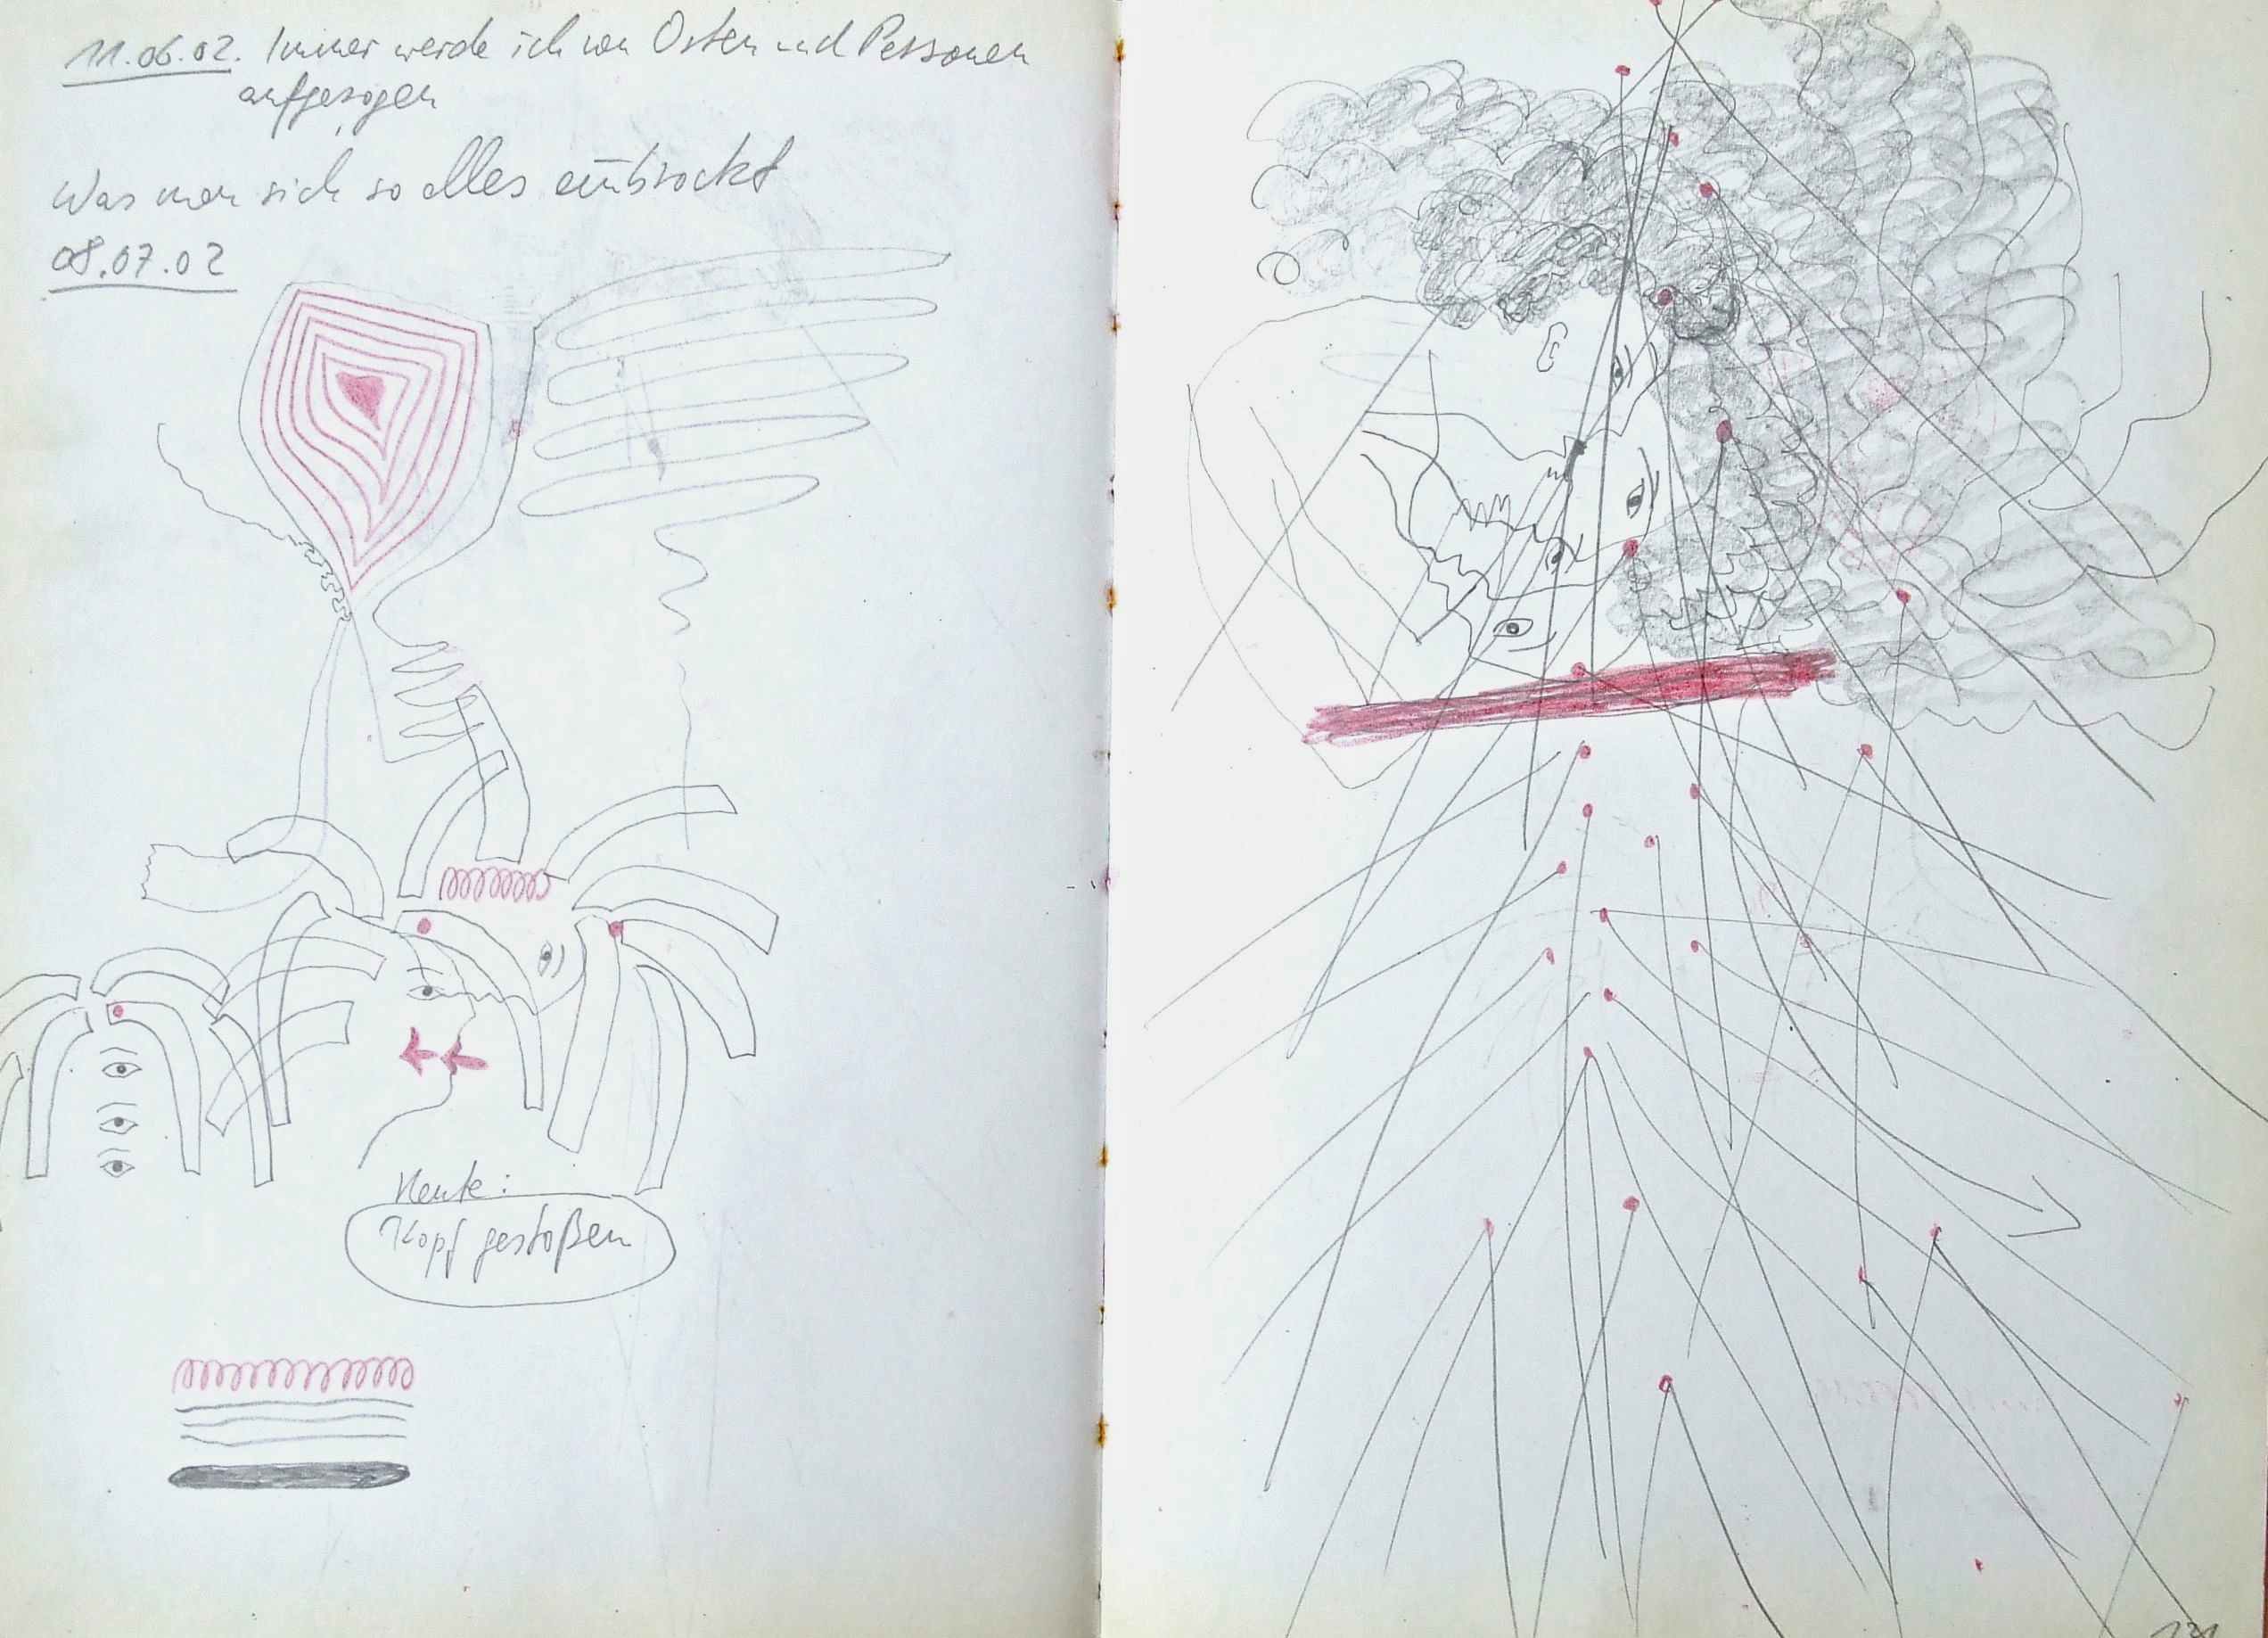 11.06.02. Immer werde ich von Orten und Personen
aufgesogen
Was man sich so alles einbrockt
08.07.02
Heute:
Kopf gestoßen